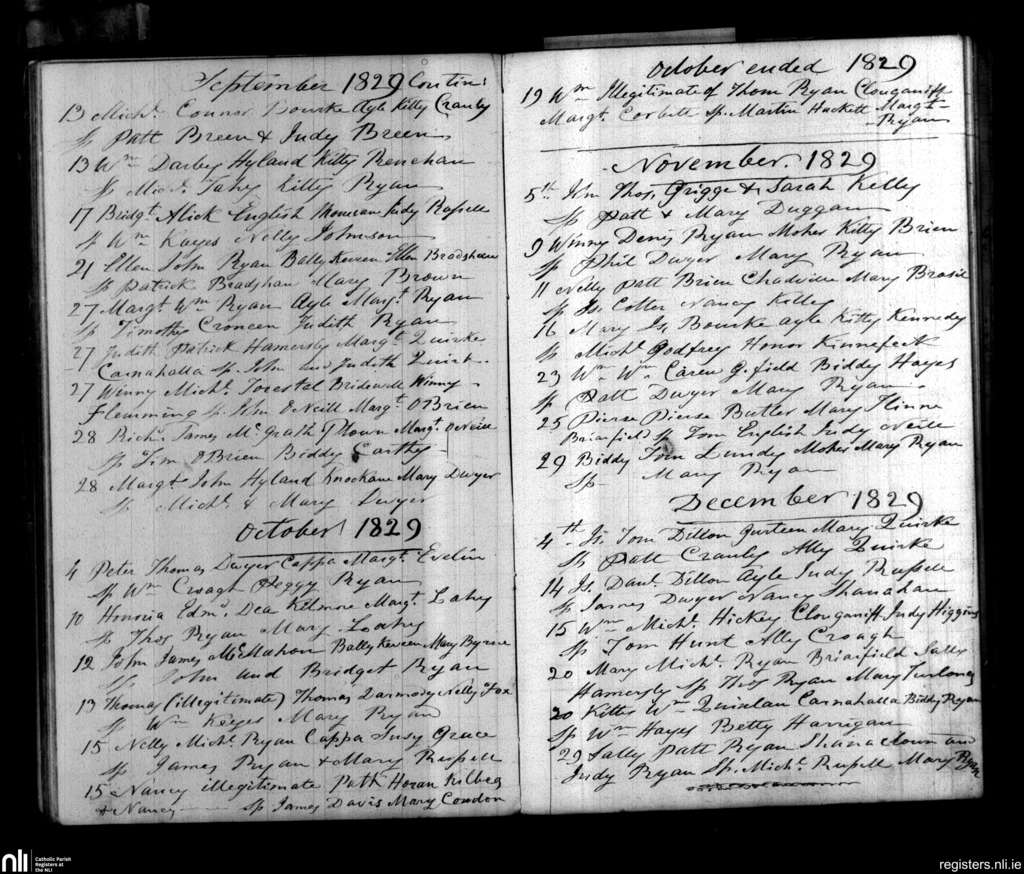 September 1829 Contin:
13 Mich.l Connor Bourke Ayle Kitty Cranly
Sp Patt Breen & Judy Breen
13 Wm Darby Hyland Kitty Renehan
Sp Mich.l Fahy Kitty Ryan
17 Bridg.t Alick English Judy Russell
Sp Wm Kayes Nelly Johnson
21 Ellen John Ryan Ballykeveen Ellen Bradshaw
Sp Patrick Bradshaw Mary Brown
27 Marg.t Wm Ryan Ayle Marg.t Ryan
Sp Timothy Croneen Judith Ryan
27 Judith Patrick Hamersly Marg.t Quirke
Carnahalla Sp. John and Judith Quirk
27 Winny Mich.l Bridewell Winny
Flemming Sp. John O Neill Marg.t O Brien
28 Rich.d James Mc Grath Marg.t O Neill
Sp Tim O Brien Biddy Carthy
28 Marg.t John Hyland Knockane Mary Dwyer
Sp Mich.l & Mary Dwyer
October 1829
4 Peter Thomas Dwyer Cappa Marg.t
Sp Wm Croagh Peggy Ryan
10 Honoria Edm.d Dea Kilmore Marg.t Lahy
Sp Thos Ryan Mary
12 John James McMahon Ballykeveen Mary Byrne
Sp John and Bridget Ryan
13 Thomas (illegitimate) Thomas Darmody Nelly Fox
Sp Wm Keyes Mary Ryan
15 Nelly Mich.l Ryan Cappa Susy Grace
Sp James Ryan & Mary Russell
15 Nancy illegitimate Patk Horan Kilbeg
& Nancy — Sp James Davis Mary Condon
October ended 1829
19 Wm Illegitimate of Thom Ryan Clouganiff
Margt. Corbett Sp. Martin Hackett Margt
Ryan
November. 1829
5th Jn Thos. Grigge & Sarah Kelly
Sp Patt & Mary Duggan
9 Winny Denis Ryan Moher Kitty Brien
Sp Phil Dwyer Mary Ryan
11 Nelly Patt Brien Chadville Mary
Sp Js. Colter Nancy Kelley
16 Mary Js Bourke Ayle Kitty Kennedy
Sp Mich.l Godfrey Honor Kinnefeck
23 Wm Wm Carew G.field Biddy Hayes
Sp Patt Dwyer Mary Ryan
25 Pierse Pierse Butler Mary
Briarfield Sp Tom English Judy Neill
29 Biddy Tom Lundy Moher Mary Ryan
Sp Mary Ryan
December 1829
4th Js. Tom Dillon Gurteen Mary Quirke
Sp Patt Cranly Ally Quirke
14 Js. Danl. Dillon Ayle Judy Russell
Sp James Dwyer Nancy Shanahan
15 Wm Mich.l Hickey Clouganiff Judy Higgins
Sp Tom Hunt Ally Croagh
20 Mary Mich.l Ryan Briarfield Sally
Hamersly Sp Thos Ryan Mary Furlong
20 Kitty Wm Quinlan Carnahalla Biddy Ryan
Sp Wm Hayes Betty Harrigan
29 Sally Patt Ryan Shanacloun and
Judy Ryan Sp. Mich.l Russell Mary Ryan
nli
Catholic Parish
Registers at
the NLI
registers.nli.ie